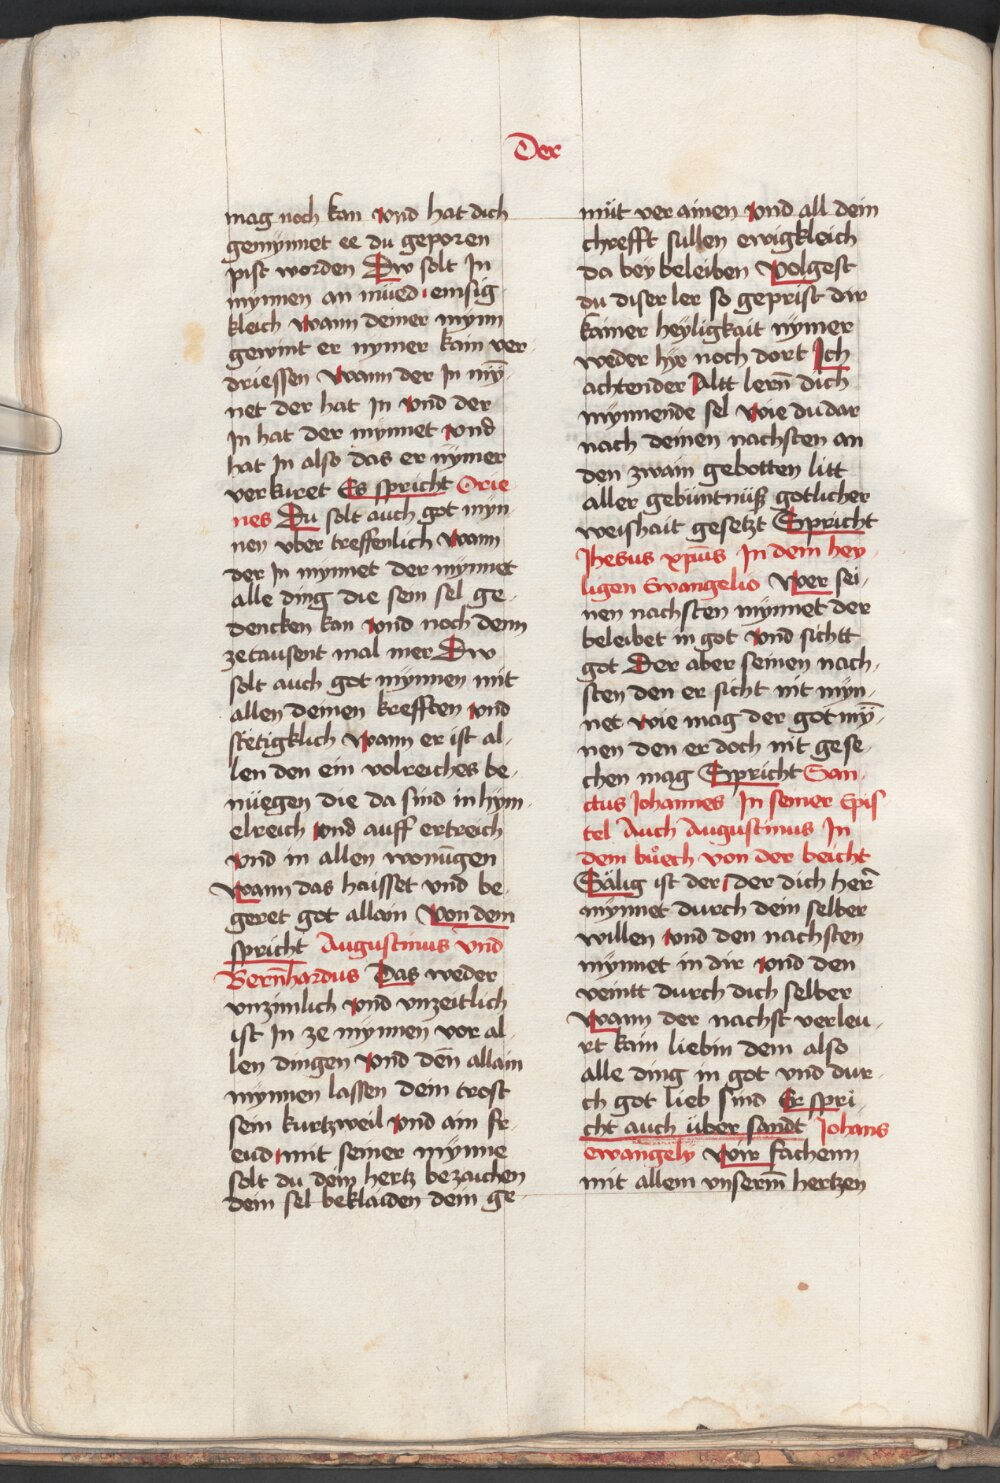 Der
mag noch kan vnd hat dich
gemynnet ee du geporen
pist worden Dw solt In
mynnen an müed emsig
kleich wann deiner mynn
gewint er nymer kain ver-
driessen wann der In mȳ-
net der hat In vnd der
In hat der mynnet vnd
hat In also das er nymer
verkuret Es spricht Orie
nes Du solt auch got myn
nen vber treffenlich wann
der In mynnet der mynnet
alle ding die sein sel ge-
dencken kan vnd noch denn
zetausent mal mer Dw
solt auch got mynnen mit
allen deinen krefften vnd
stëtigklich wann er ist al-
len den ein volreiches be-
nüegen die da sind in hym-
elreich vnd auff ertreich
vnd in allen wonūgen
wann das haisset vnd be-
geret got allain Von dem
spricht Augustinus vnd
Bern̄hardus Das weder
vnzimlich vnd vnzeitlich
ist In ze mynnen vor al-
len dingen vnd den̄ allain
mynnen lassen dein trost
sein kurtzweil vnd ain fr-
eud mit seiner mynne
solt du dein hertz bezaichen
dein sel beklaiden dein ge-
müt ver ainen vnd all dein
chrefft sullen ewigkleich
da bey beleiben Volgest
du diser ler so geprist dir
kainer heyligkait nymer
weder hye noch dort Ich
achtender Altt lern̄ dich
mynnende sel wie du dar
nach deinen nachsten an
den zwain gebotten litt
aller gebüntnüß gotlicher
weishait gesetzt Spricht
Jhesus xp̄us In dem hey
ligen Ewangelio Wer sei-
nen nachsten mynnet der
beleibet in got vnd sichtt
got Der aber seinen nach-
sten den er sicht nit myn-
net wie mag der got mȳ-
nen den er doch nit gese-
chen mag Spricht San-
ctus Johannes In seiner Epis
tel Auch Augustinus In
dem bůech von der beicht
Sälig ist der der dich her̄
mynnet durch dein selber
willen vnd den nachsten
mynnet in dir vnd den
veintt durch dich selber
Wann der nachst verleu-
rt kain liebin dem also
alle ding in got vnd dur-
ch got lieb sind Er spri-
cht auch über sandt Johans
ewangely Wir fachenn
mit allem vnserm̄ hertzen